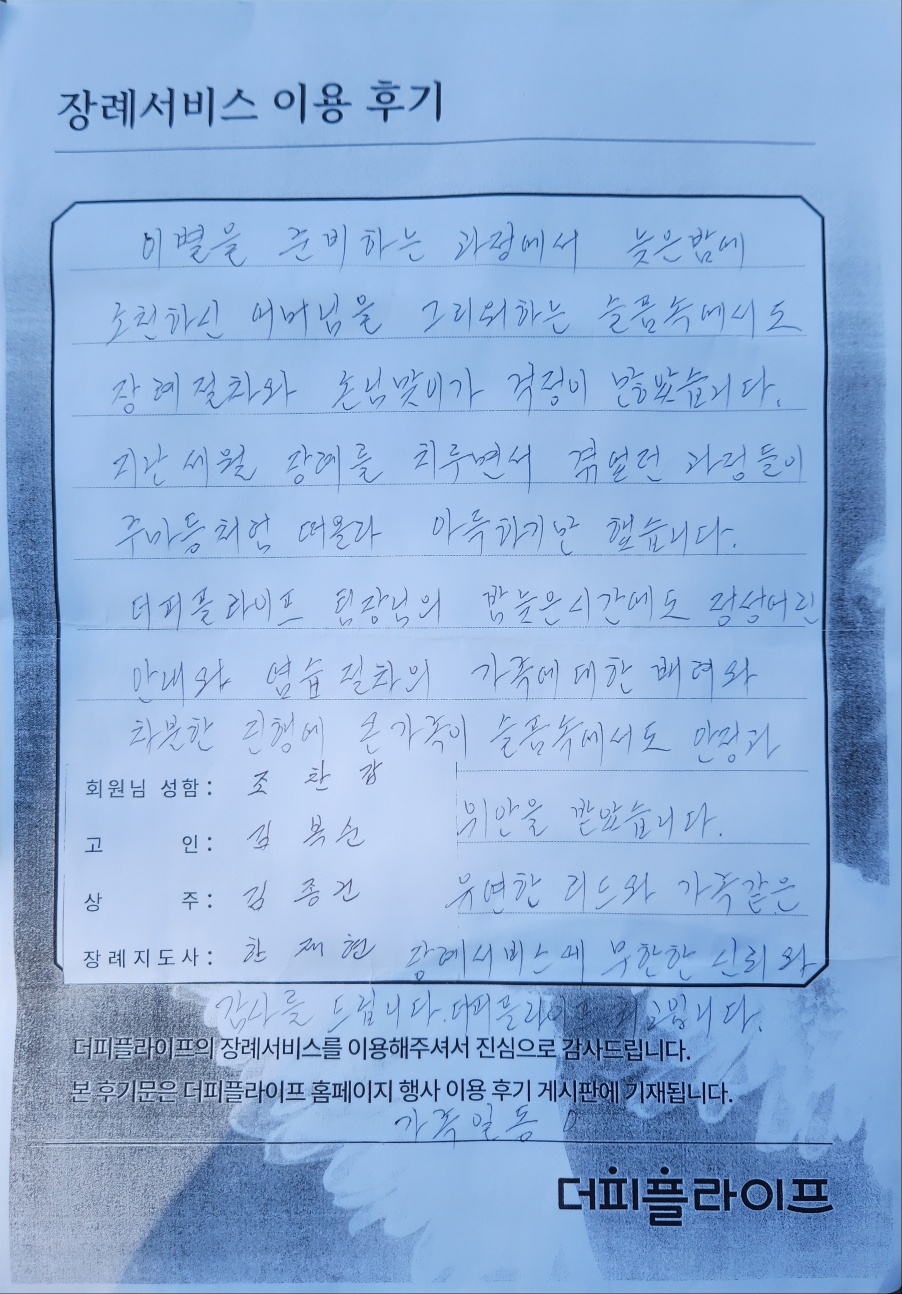 장례서비스 이용 후기
이별을 준비하는 과정에서 늦은밤에
소천하신 어머님을 그리워하는 슬픔속에서도
장례절차와 손님맞이가 걱정이 많았습니다.
지난세월 장례를 치루면서 겪었던 과정들이
주마등처럼 떠올라 아득하기만 했습니다.
더피플라이프 팀장님의 밤늦은시간에도 정성어린
안내와 염습절차의 가족에대한 배려와
차분한 진행에 온가족이 슬픔속에서도 안정과
회원님 성함: 조찬갑
위안을 받았습니다.
고 인: 김복순
상 주: 김종건
유연한 리드와 가족같은
장례지도사: 한재현
장례서비스에 무한한 신뢰와
감사를 드립니다. 더피플라이프 최고입니다.
더피플라이프의 장례서비스를 이용해주셔서 진심으로 감사드립니다.
본 후기문은 더피플라이프 홈페이지 행사 이용 후기 게시판에 기재됩니다.
가족일동
더피플라이프